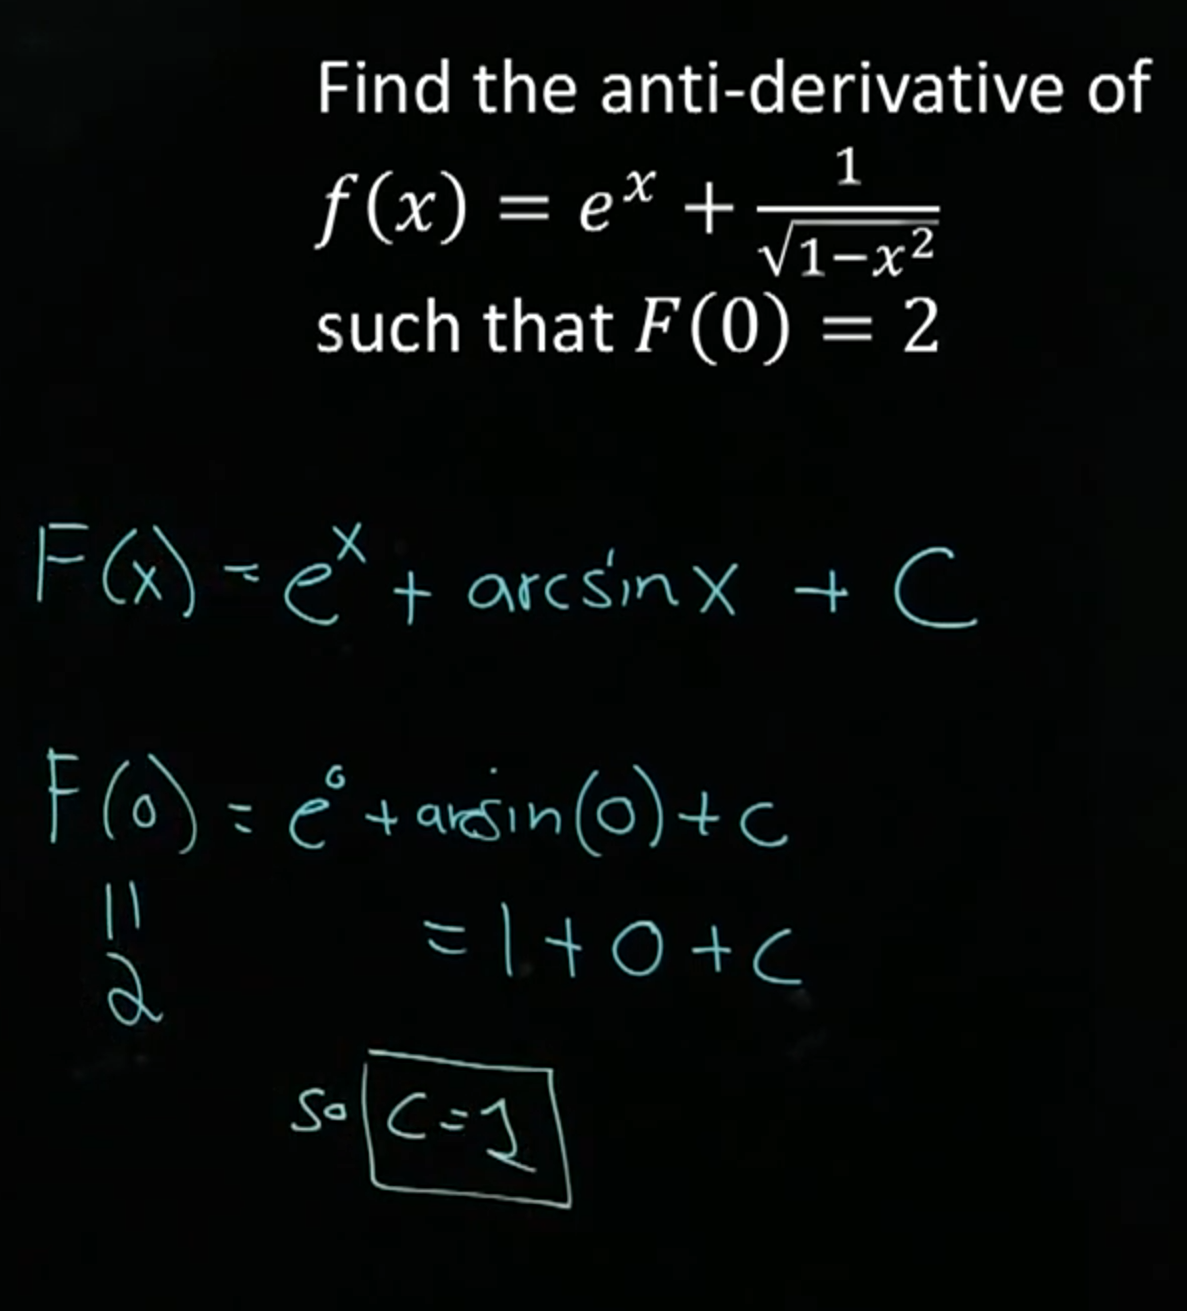 Find the anti-derivative of
f(x) = eˣ + 1/√(1−x²)
such that F(0) = 2
F(x) = eˣ + arcsin x + C
F(0) = e⁰ + arcsin(0) + c
= 1 + 0 + c
||
2
so C = 1